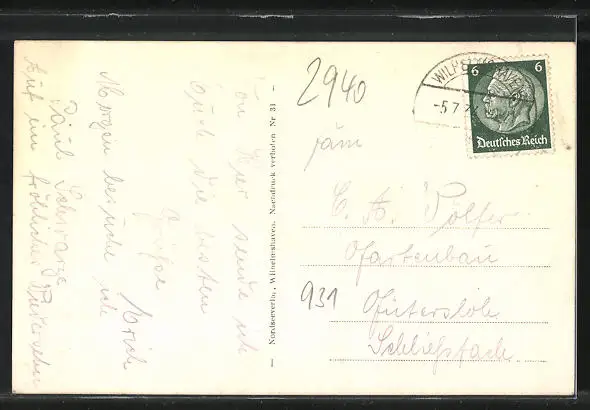 Von hier sende ich
Euch die besten
Grüße
Erich
Morgen besuche ich
Paul Schwarze
Auf ein fröhliches Wiedersehn
— Nordseeverlag, Wilhelmshaven. Nachdruck verboten Nr 31 —
2940
WILHELMSHAVEN
-5.7.
6 6
Deutsches Reich
Fam
Pölfer
Gartenbau
931 Gütersloh
Schließfach